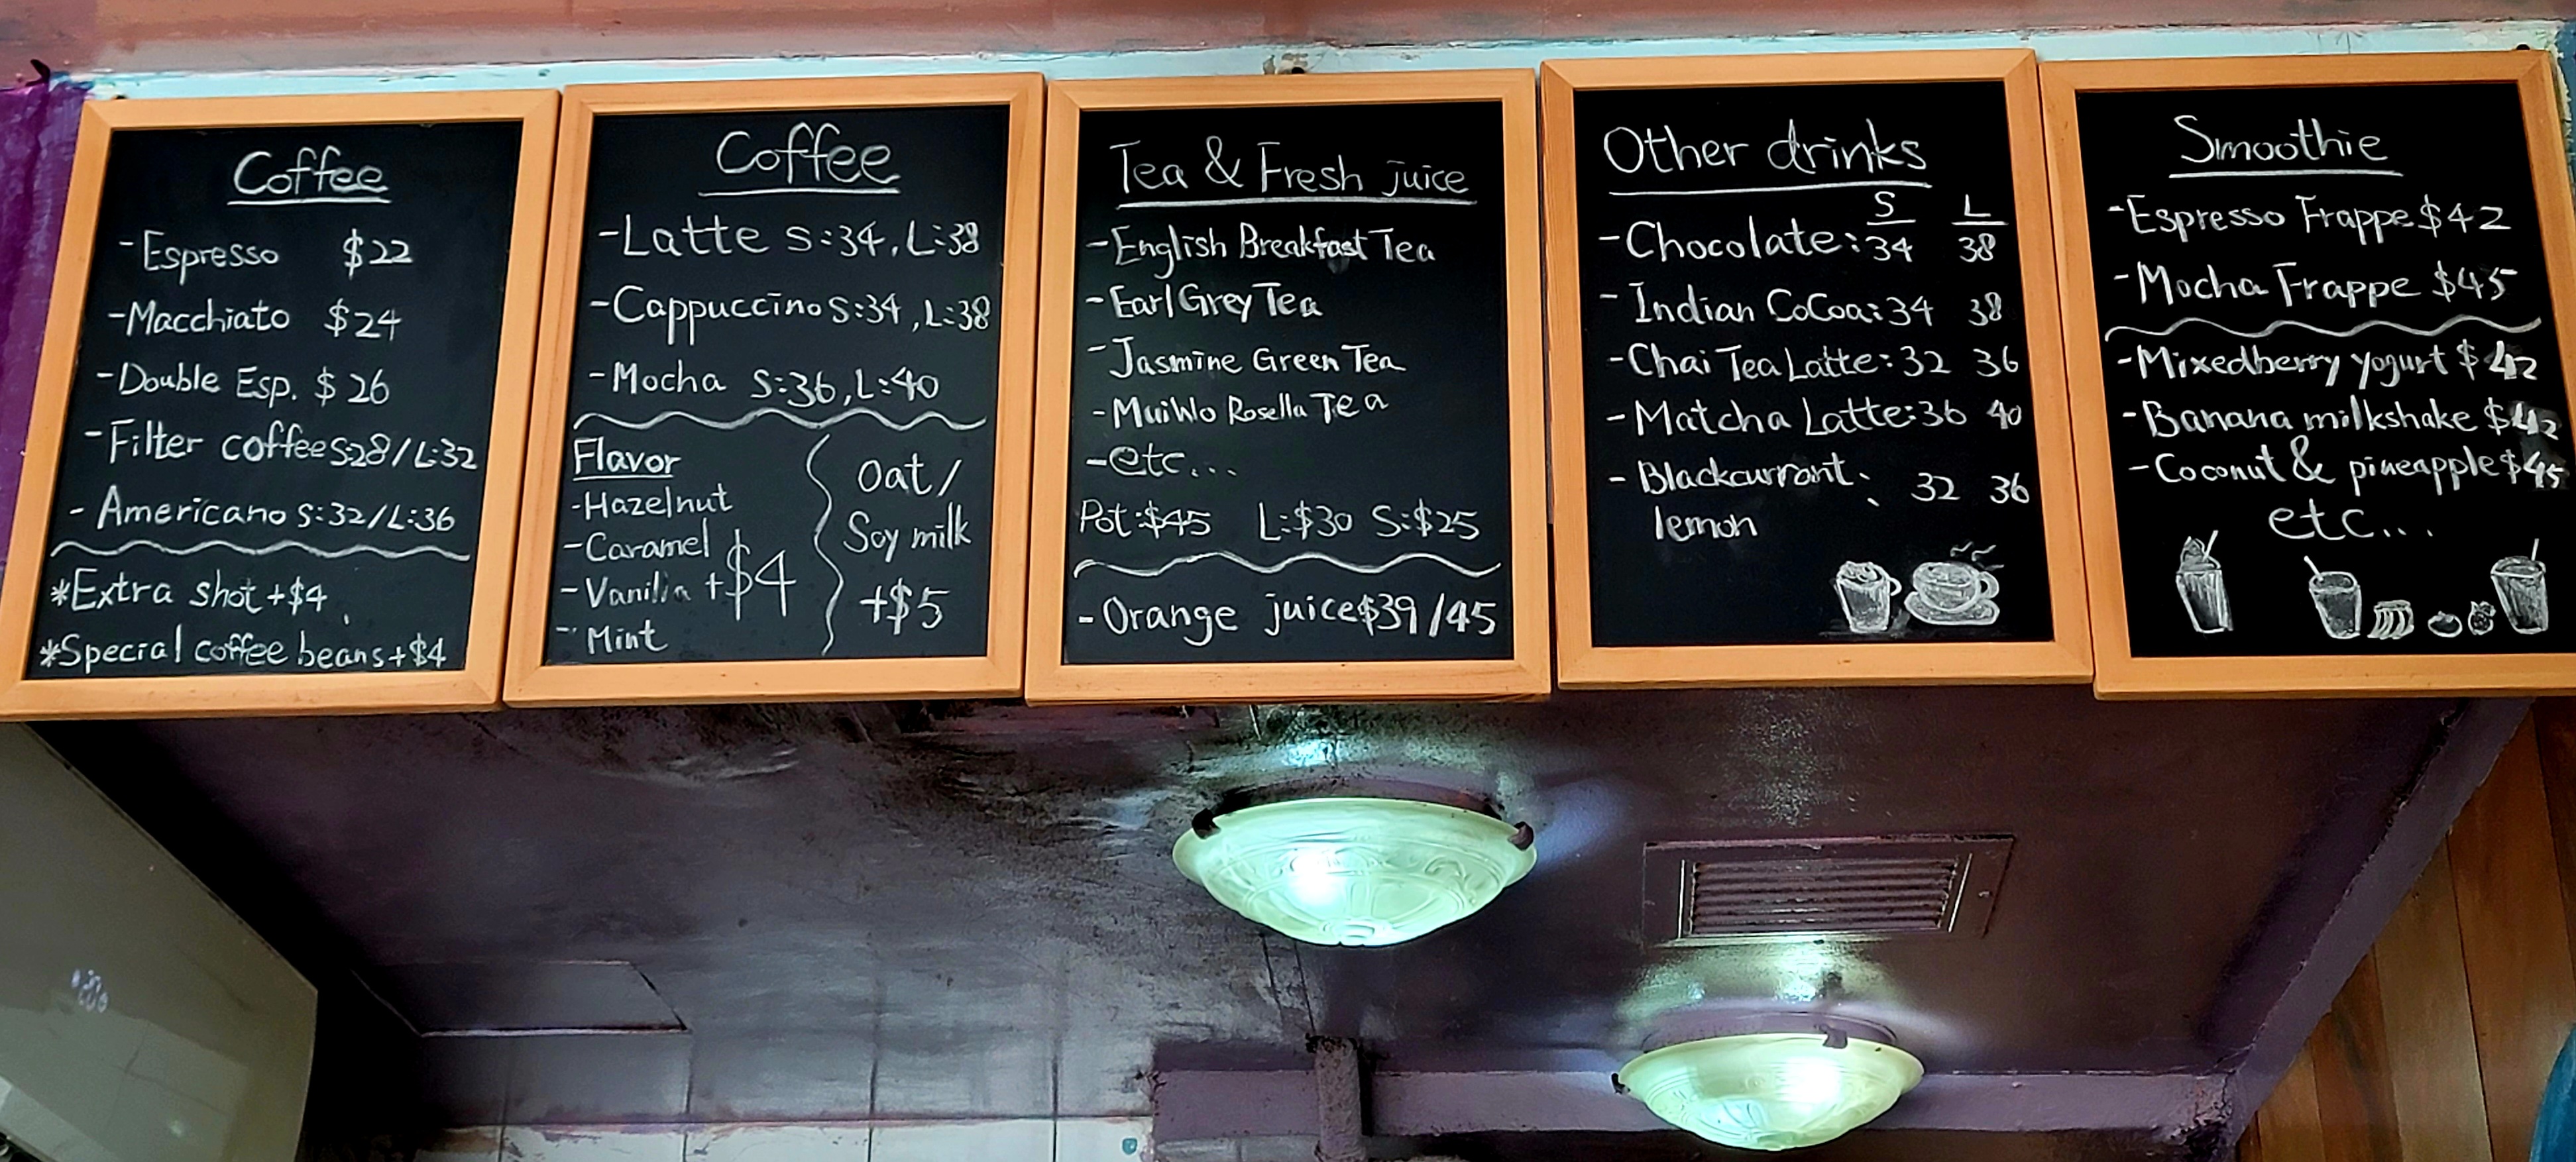 Coffee
-Espresso $22
-Macchiato $24
-Double Esp. $26
-Filter coffee S:28/L:32
-Americano S:32/L:36
*Extra shot +$4
*Special coffee beans +$4
Coffee
-Latte S:34, L:38
-Cappuccino S:34, L:38
-Mocha S:36, L:40
Flavor
-Hazelnut
-Caramel
-Vanilla +$4
-Mint
Oat/
Soy milk
+$5
Tea & Fresh juice
-English Breakfast Tea
-Earl Grey Tea
-Jasmine Green Tea
-MuiWo Rosella Tea
-etc...
Pot:$45 L:$30 S:$25
-Orange juice $39/45
Other drinks
S L
-Chocolate: 34 38
-Indian CoCoa: 34 38
-Chai Tea Latte: 32 36
-Matcha Latte: 36 40
-Blackcurrant: 32 36
lemon
Smoothie
-Espresso Frappe $42
-Mocha Frappe $45
-Mixedberry yogurt $42
-Banana milkshake $42
-Coconut & pineapple $45
etc...